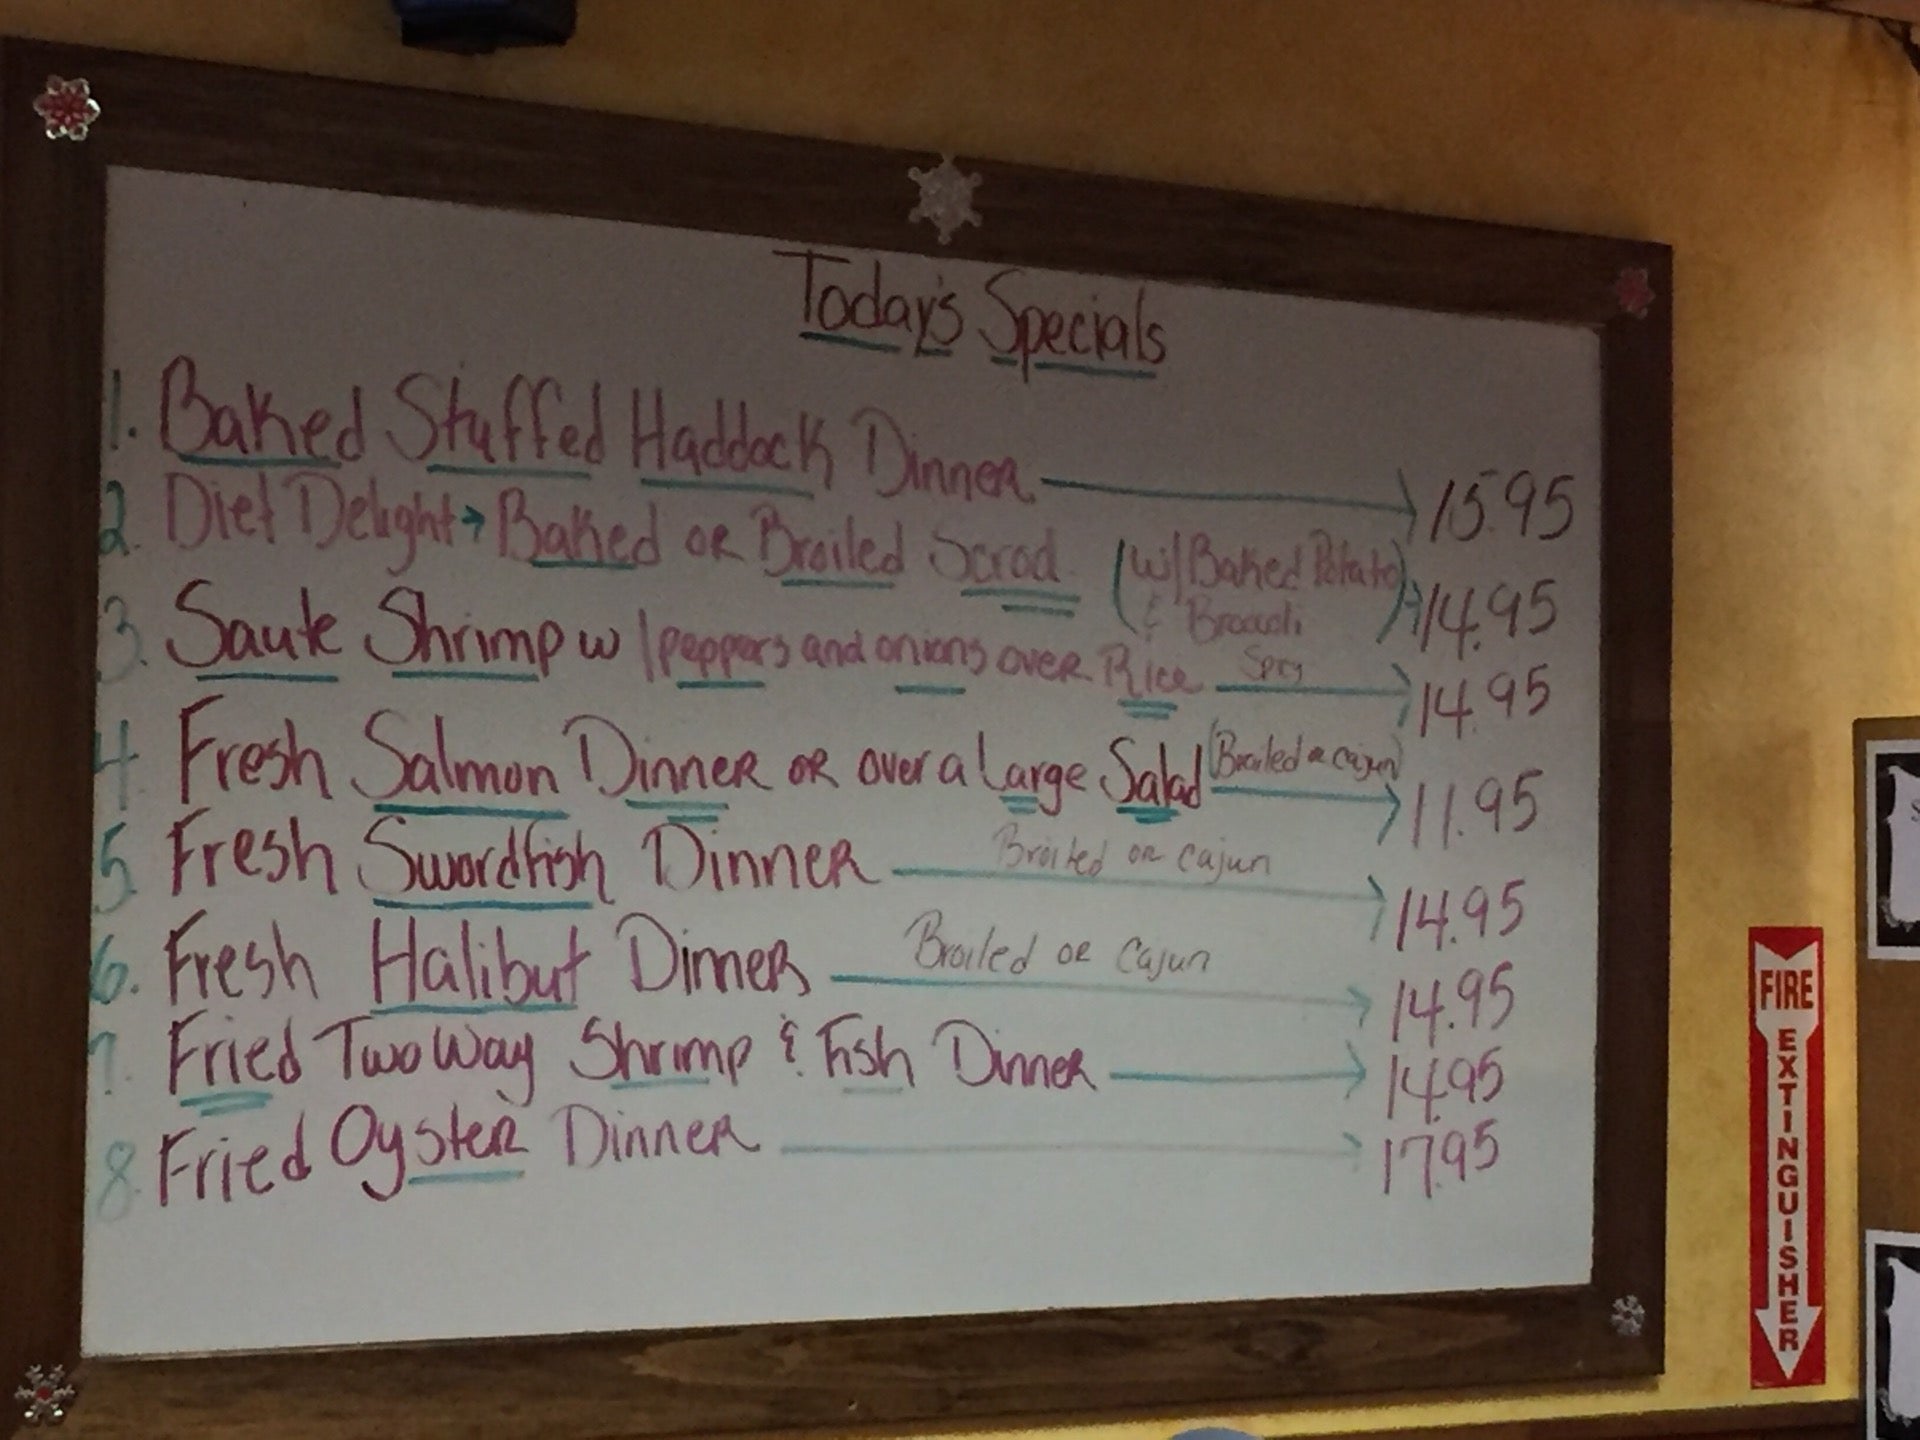 Today's Specials
1. Baked Stuffed Haddock Dinner → 15.95
2. Diet Delight → Baked or Broiled Scrod (w/Baked Potato & Broccoli) → 14.95
3. Saute Shrimp w/peppers and onions over Rice Spcy → 14.95
4. Fresh Salmon Dinner or over a Large Salad (Broiled or cajun) → 11.95
5. Fresh Swordfish Dinner Broiled or cajun → 14.95
6. Fresh Halibut Dinner Broiled or Cajun → 14.95
7. Fried Two Way Shrimp & Fish Dinner → 14.95
8. Fried Oyster Dinner → 17.95
FIRE
EXTINGUISHER